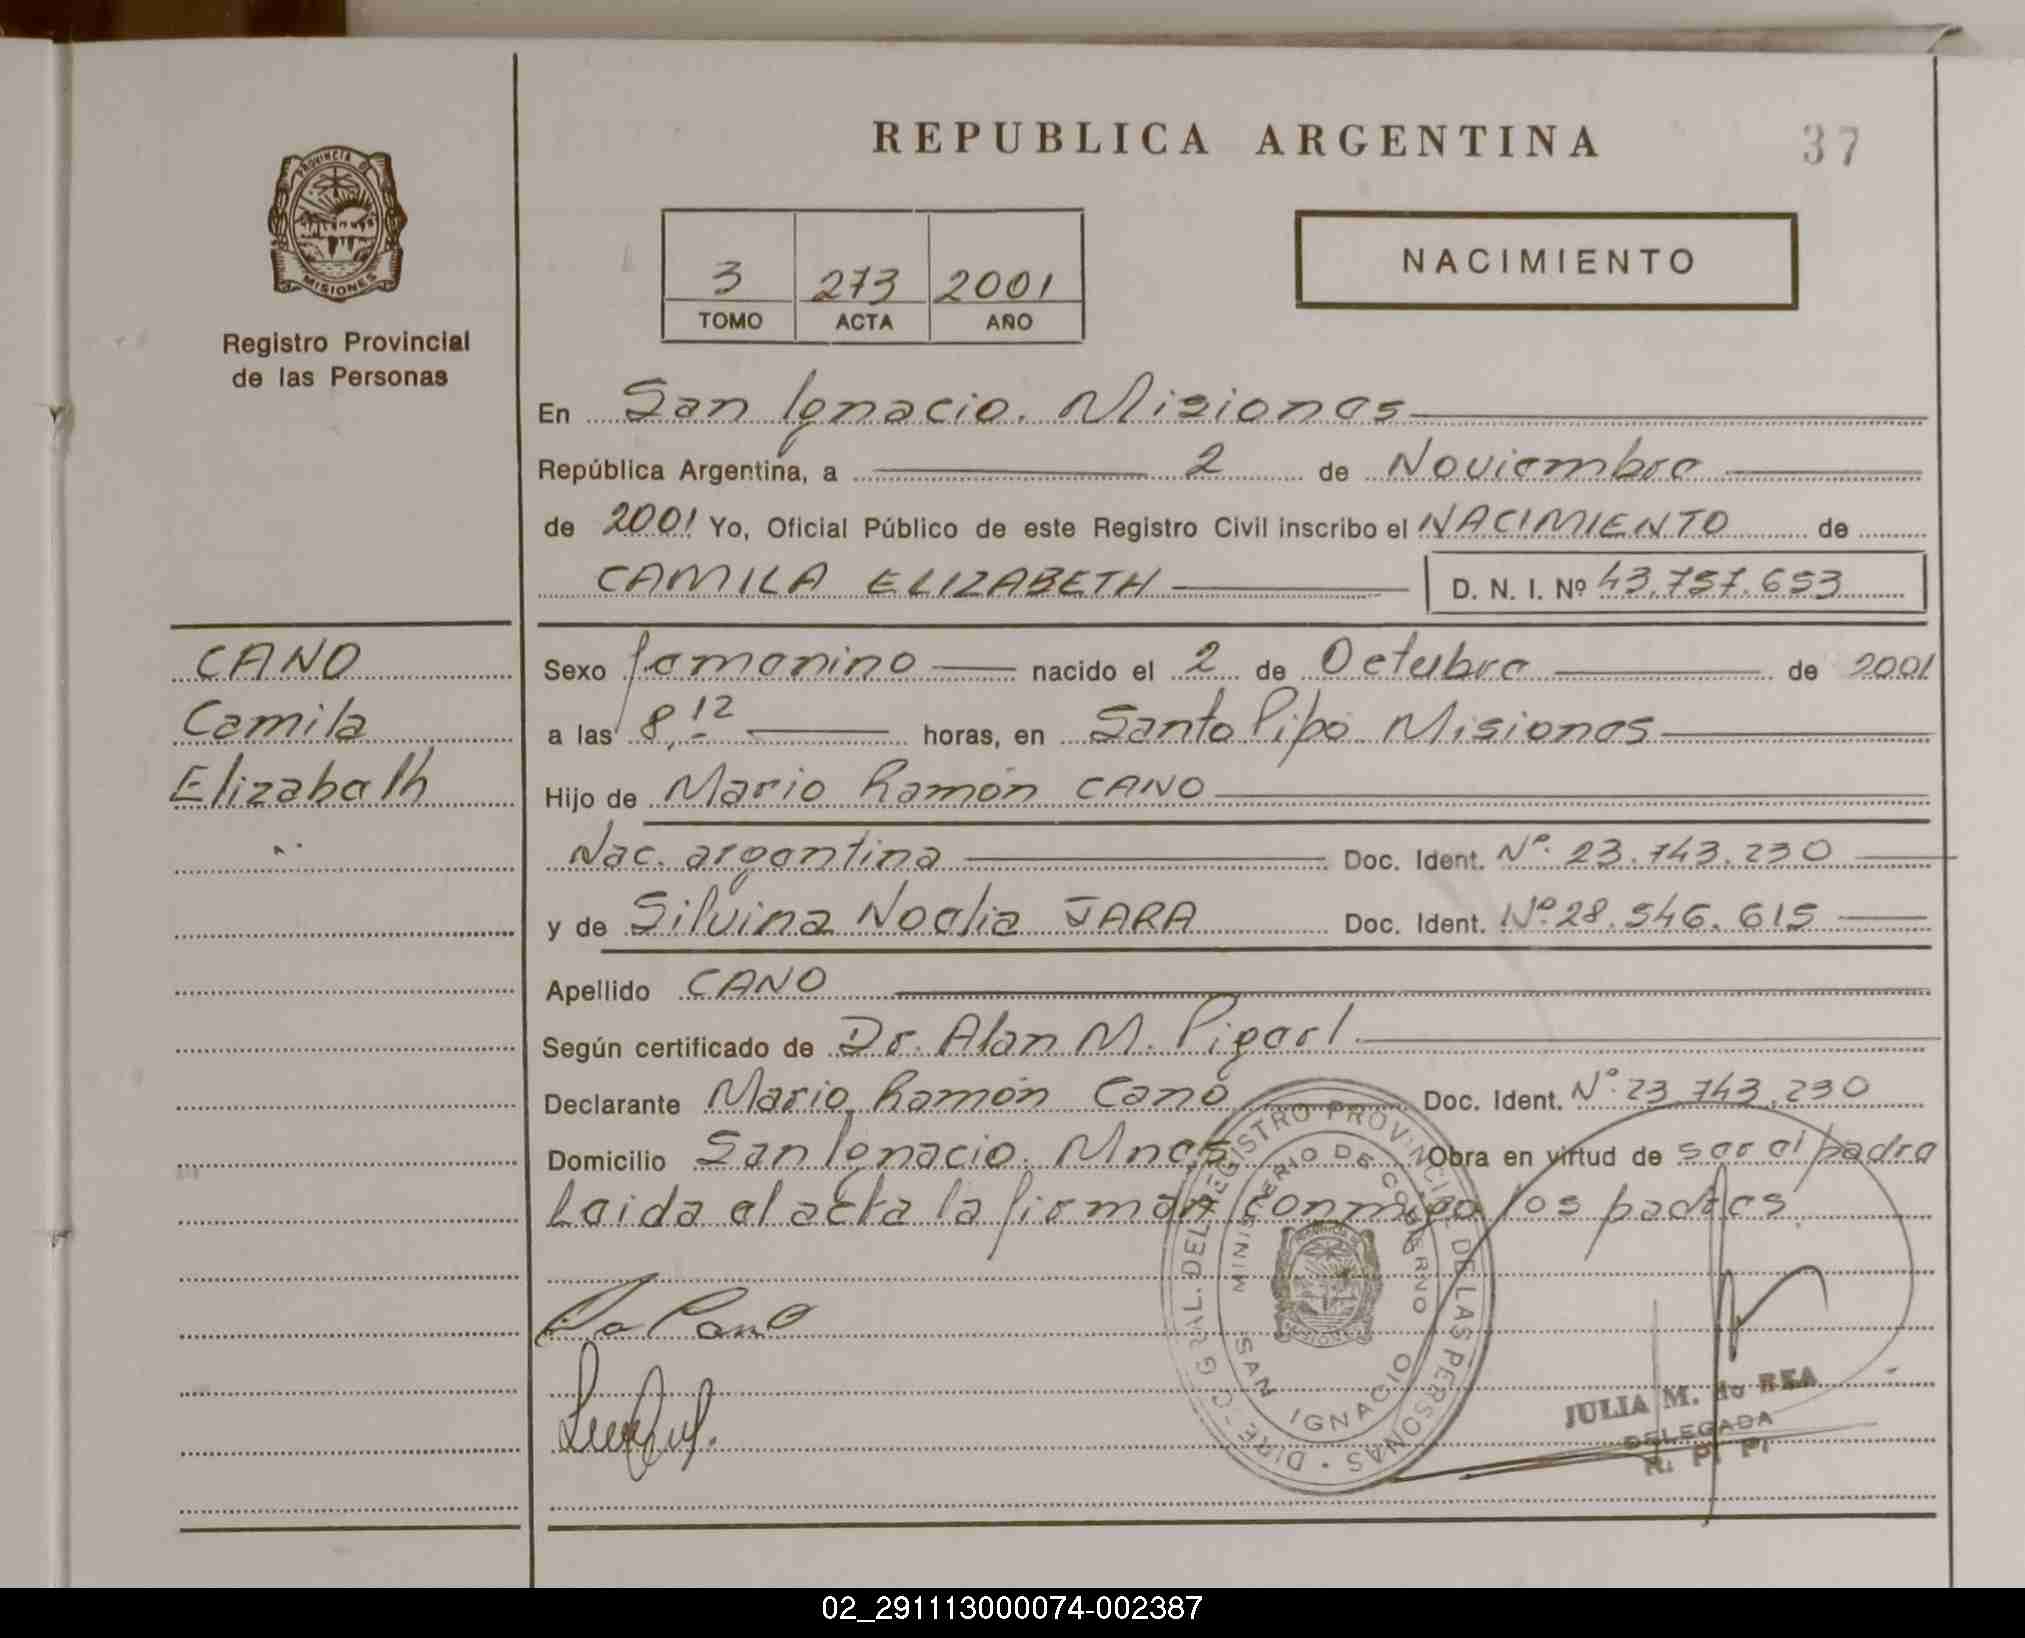 REPUBLICA ARGENTINA
37
PROVINCIA DE
MISIONES
Registro Provincial
de las Personas
3 273 2001
TOMO ACTA AÑO
NACIMIENTO
En San Ignacio. Misiones
República Argentina, a 2 de Noviembre
de 2001 Yo, Oficial Público de este Registro Civil inscribo el NACIMIENTO de
CAMILA ELIZABETH D. N. I. Nº 43.757.653
CANO
Camila
Elizabeth
Sexo femenino nacido el 2 de Octubre de 2001
a las 8,12 horas, en Santo Pipó Misiones
Hijo de Mario Ramón CANO
Nac. argentina Doc. Ident. Nº 23.743.230
y de Silvina Noelia JARA Doc. Ident. Nº 28.546.615
Apellido CANO
Según certificado de Dr. Alan M. Pigerl
Declarante Mario Ramón Cano Doc. Ident. Nº 23.743.230
Domicilio San Ignacio. Mnes Obra en virtud de ser el padre
Leida el acta la firman conmigo los padres
Cano
DIREC. GRAL. DEL REGISTRO PROVINCIAL DE LAS PERSONAS
MINISTERIO DE GOBIERNO
SAN IGNACIO
JULIA M. de REA
DELEGADA
R. P. P.
02_291113000074-002387